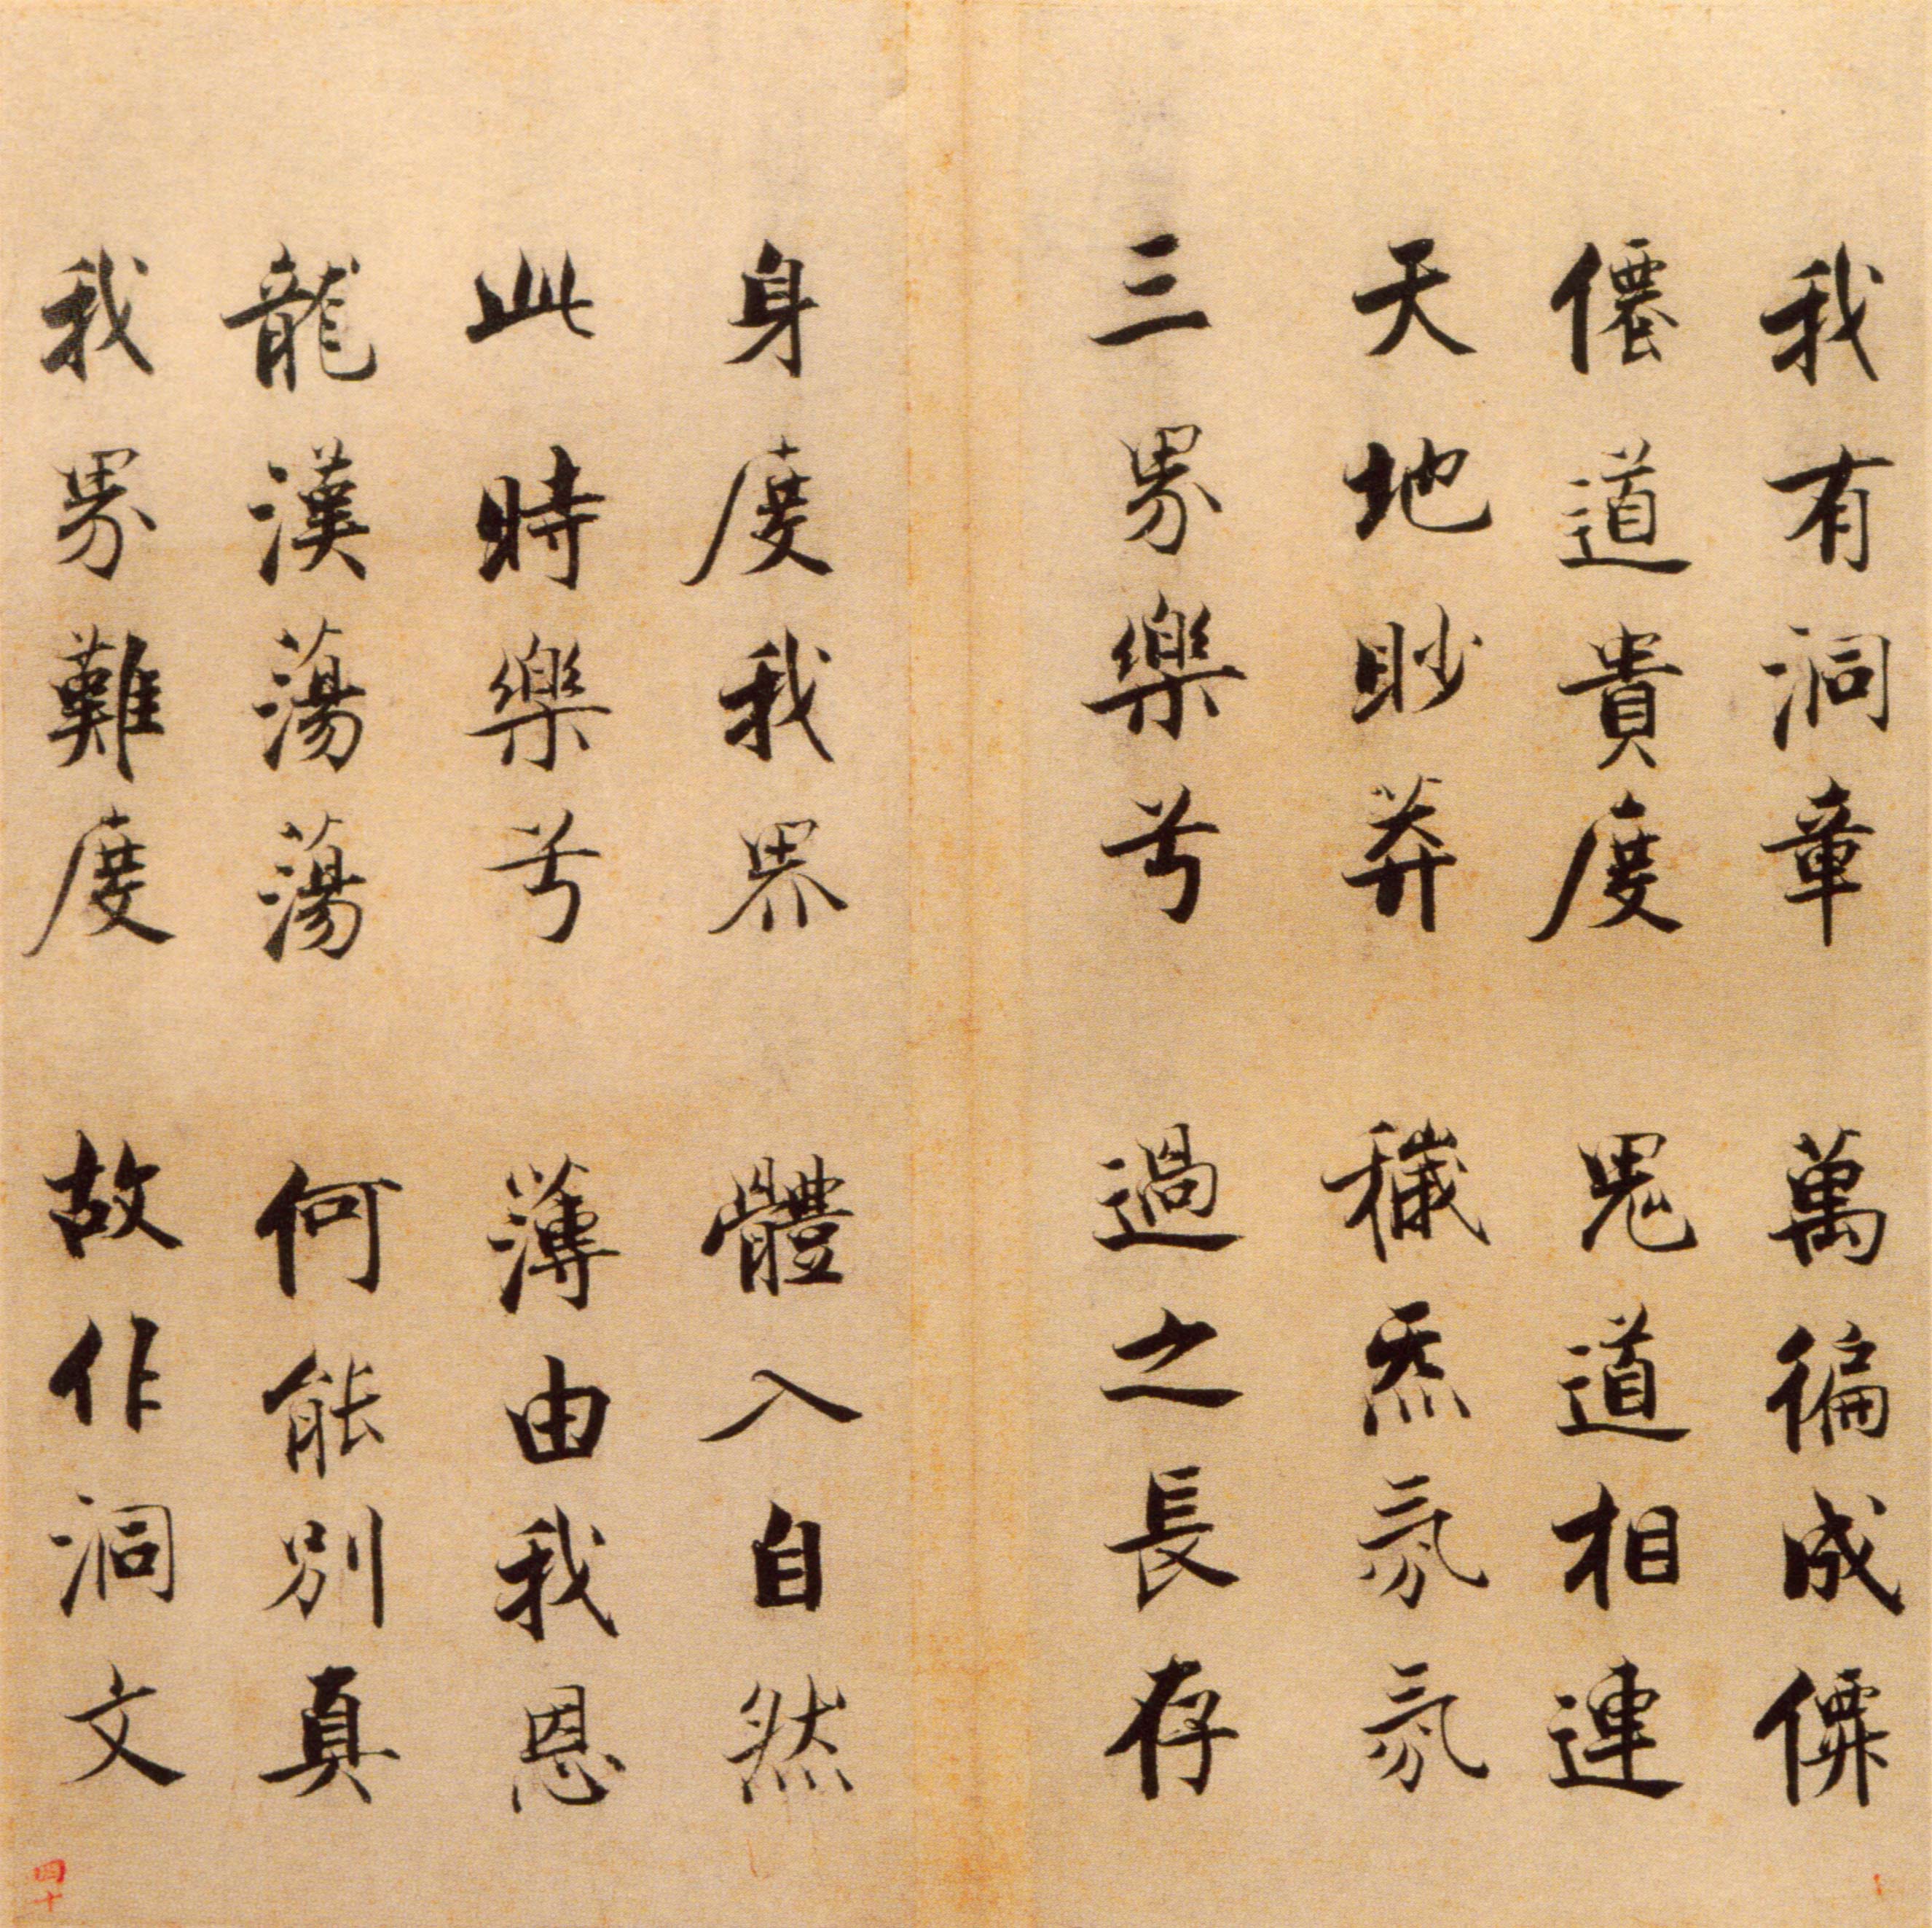 我有洞章 萬徧成仙
僊道貴度 鬼道相連
天地眇莽 穢炁氛氛
三界樂兮 過之長存
身度我界 體入自然
此時樂兮 薄由我恩
龍漢蕩蕩 何能別真
我界難度 故作洞文
四十